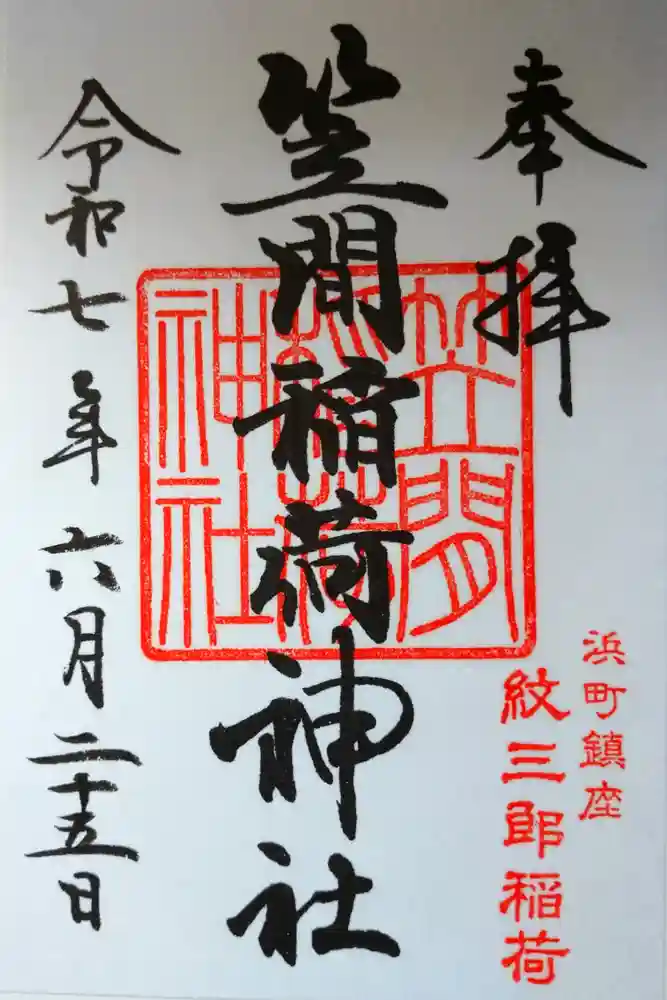 奉拝
浜町鎮座
紋三郎稲荷
笠間稲荷神社
笠間稲荷神社
令和七年六月二十五日